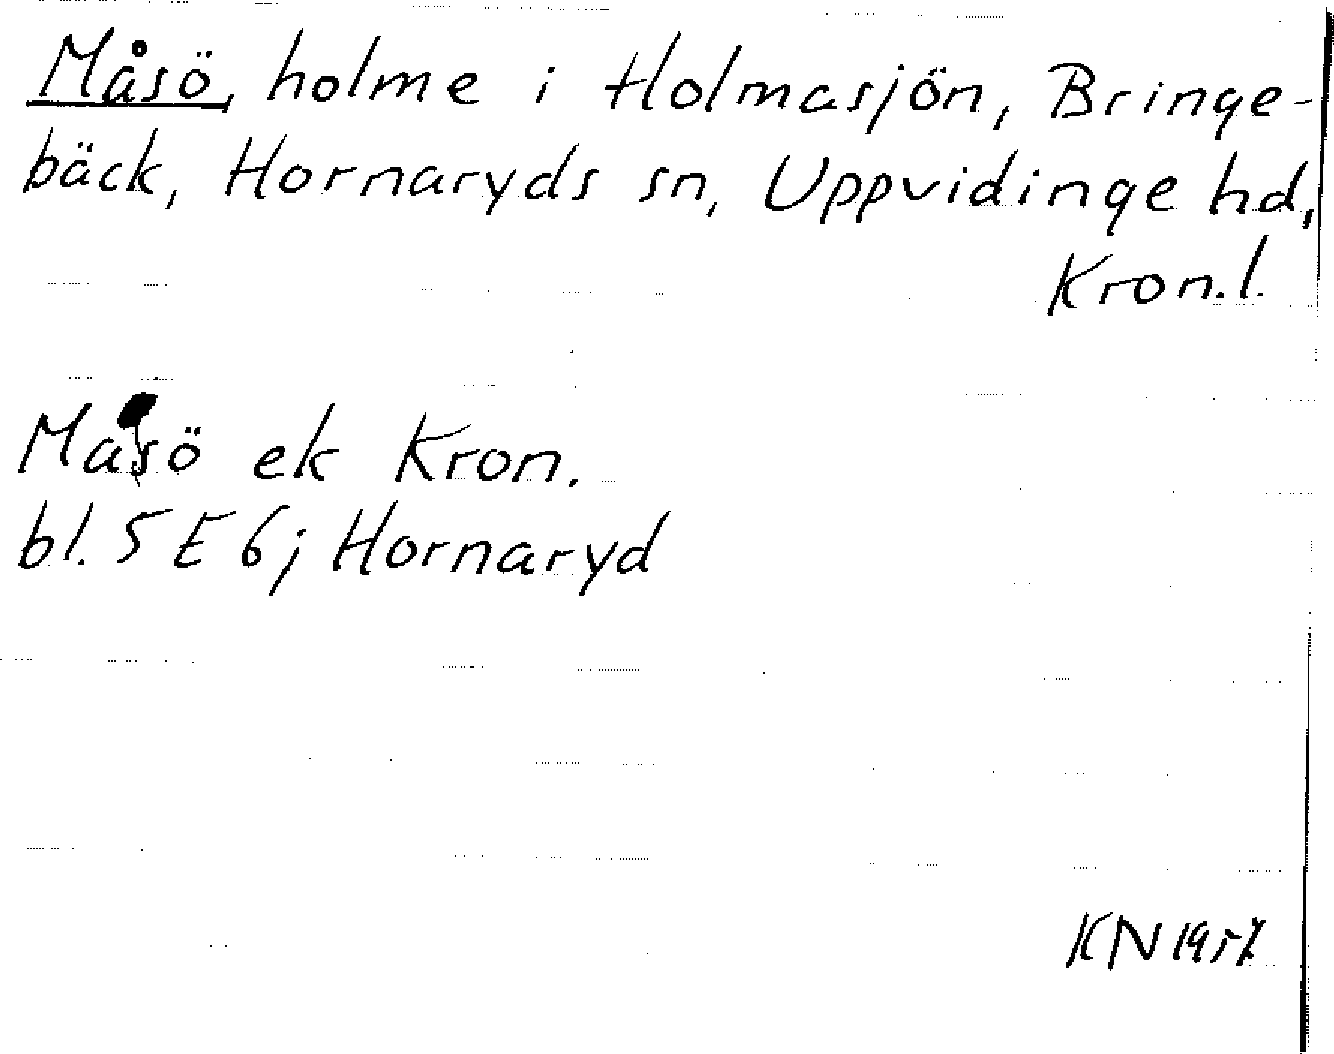 Måsö, holme i Holmasjön, Bringe-
bäck, Hornaryds sn, Uppvidinge hd,
Kron.l.
Måsö ek Kron.
bl. 5 E 6j Hornaryd
KN 1957